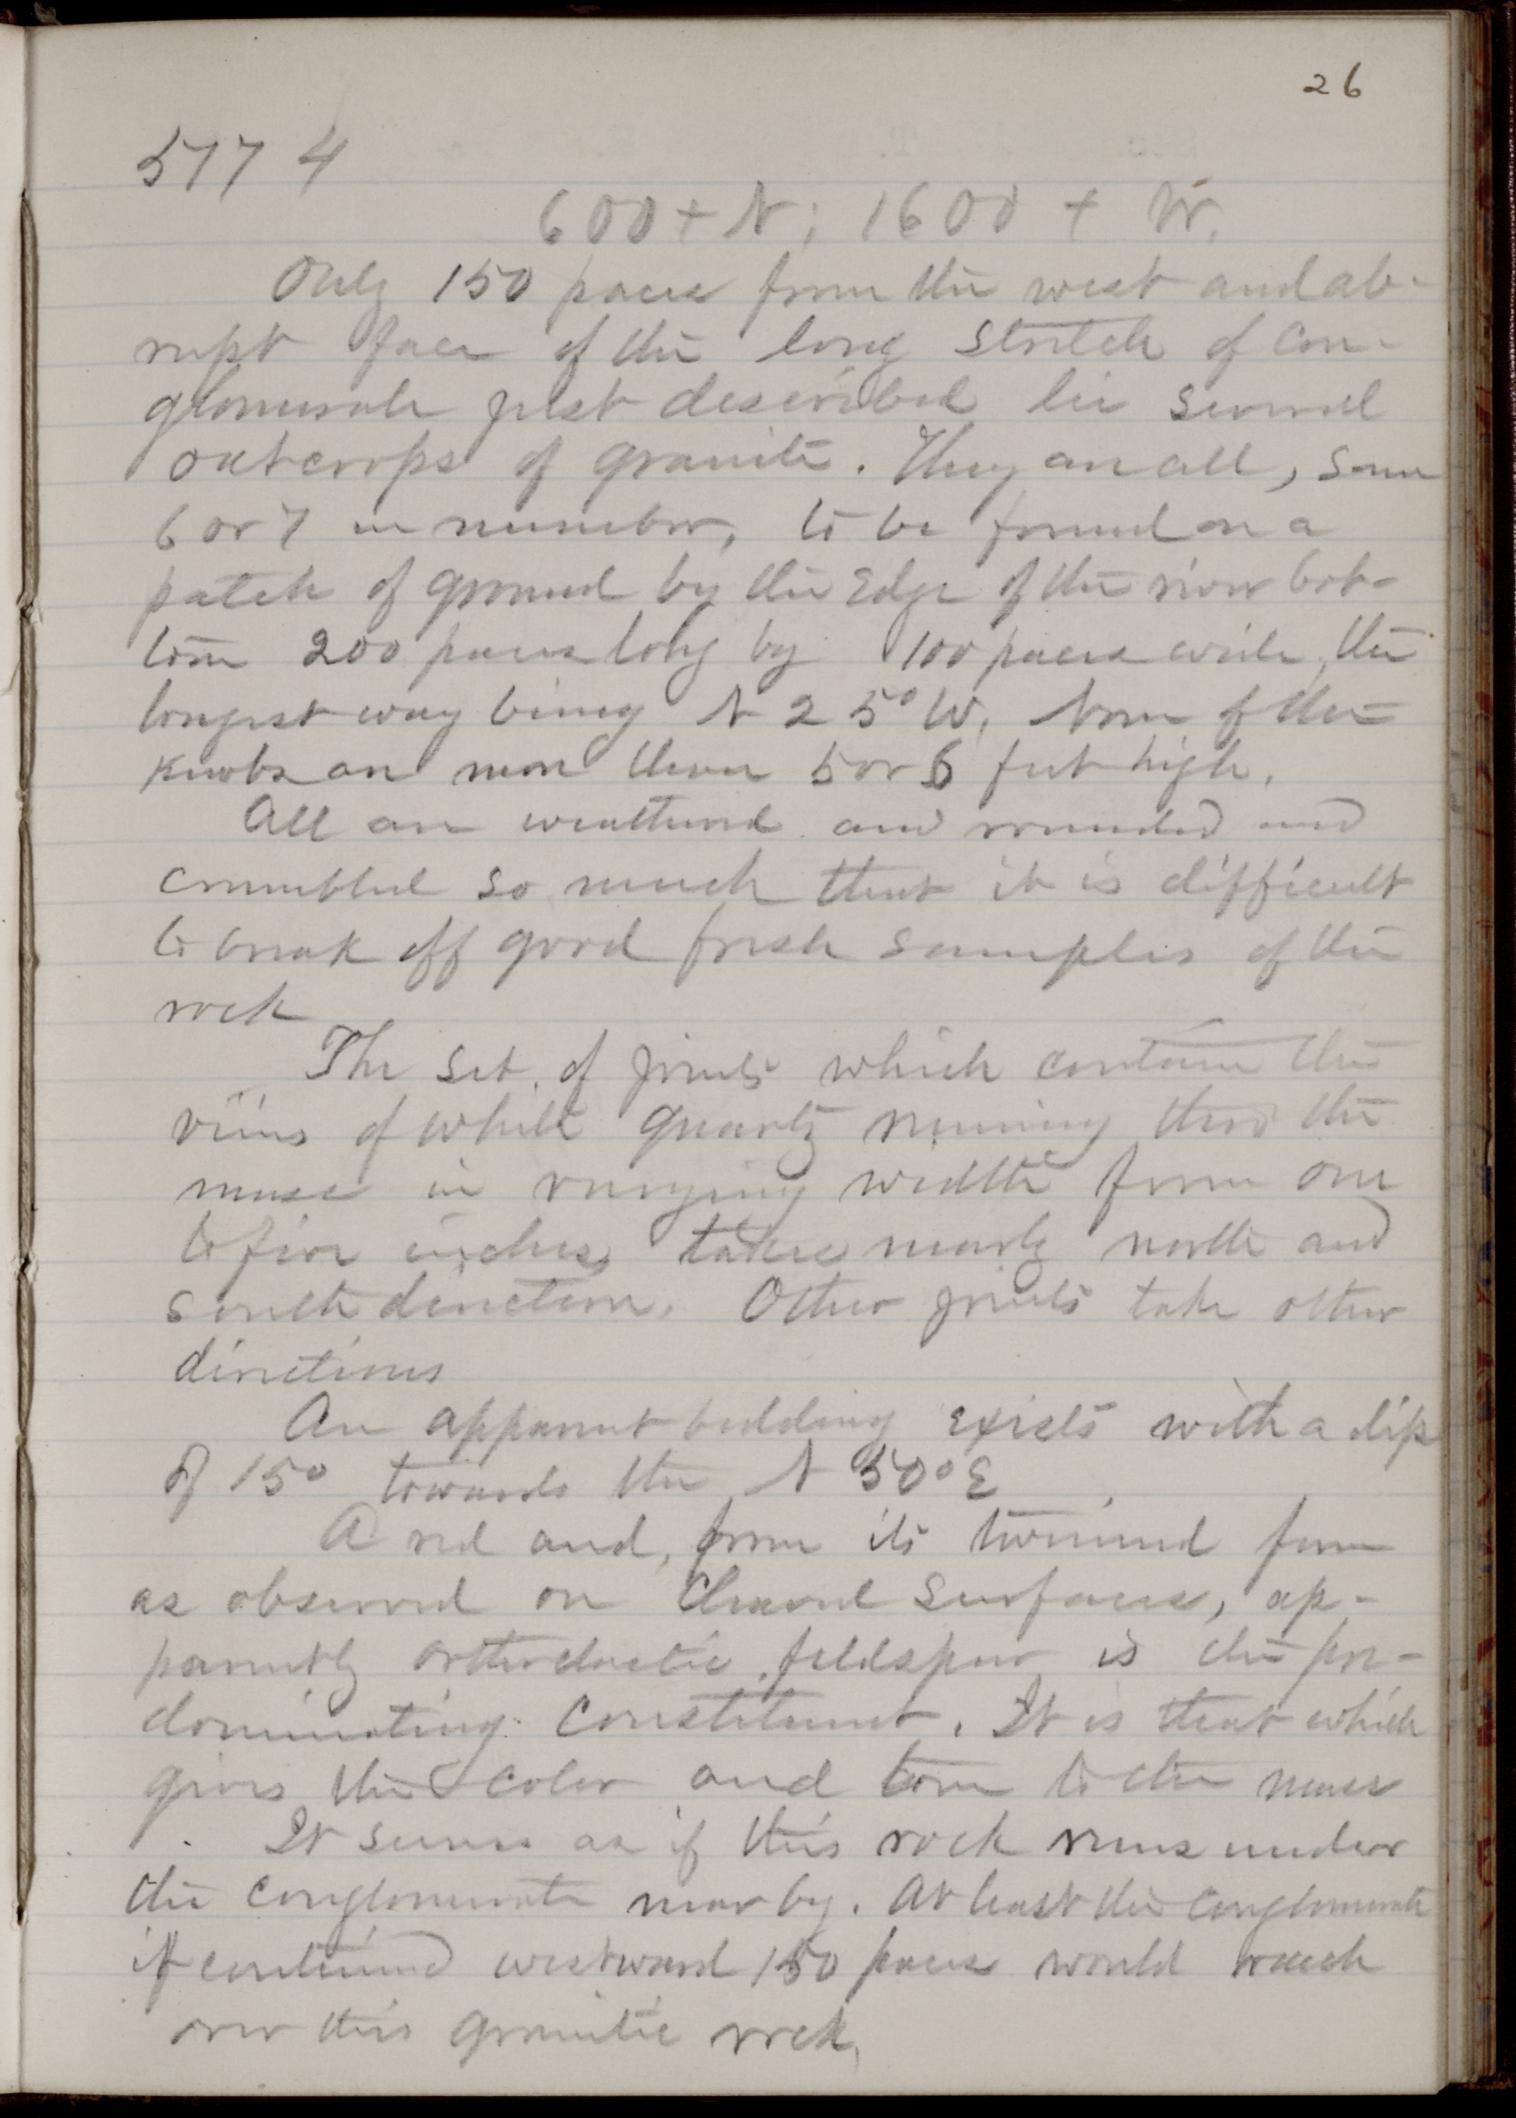 26
5774
600 + N; 1600 + W.
Only 150 paces from the west and ab-
rupt face of the long stretch of con-
glomerate just described lie several
outcrops of granite. They are all, some
6 or 7 in number, to be found on a
patch of ground by the edge of the river bot-
tom 200 paces long by 100 paces wide, the
longest way being N 25° W. None of the
knobs are more than 5 or 6 feet high.
All are weathered and rounded and
crumbled so much that it is difficult
to break off good fresh samples of the
rock
The set of joints which contain the
veins of white quartz running thro the
mass in varying width from one
to five inches, takes nearly north and
south direction. Other joints take other
directions
An apparent bedding exists with a dip
of 15° towards the N 50° E
A red and, from its twinned form
as observed on cleaved surfaces, ap-
parently orthoclastic feldspar is the pre-
dominating constituent. It is that which
gives the color and tone to the mass
It seems as if this rock runs under
the conglomerate near by. At least the conglomerate
if continued westward 150 paces would reach
over this granitic rock.